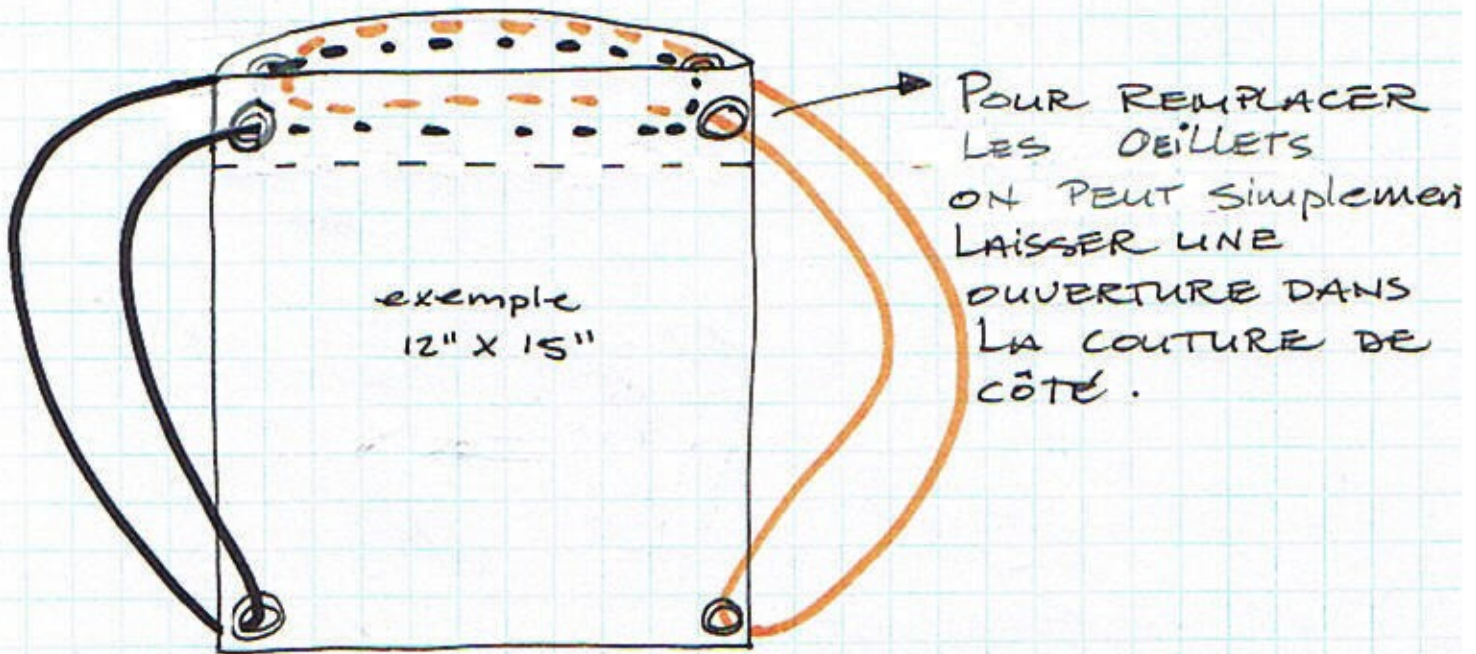 exemple
12" X 15"
POUR REMPLACER
LES OEILLETS
ON PEUT Simplemen
LAISSER UNE
OUVERTURE DANS
LA COUTURE DE
CÔTÉ.